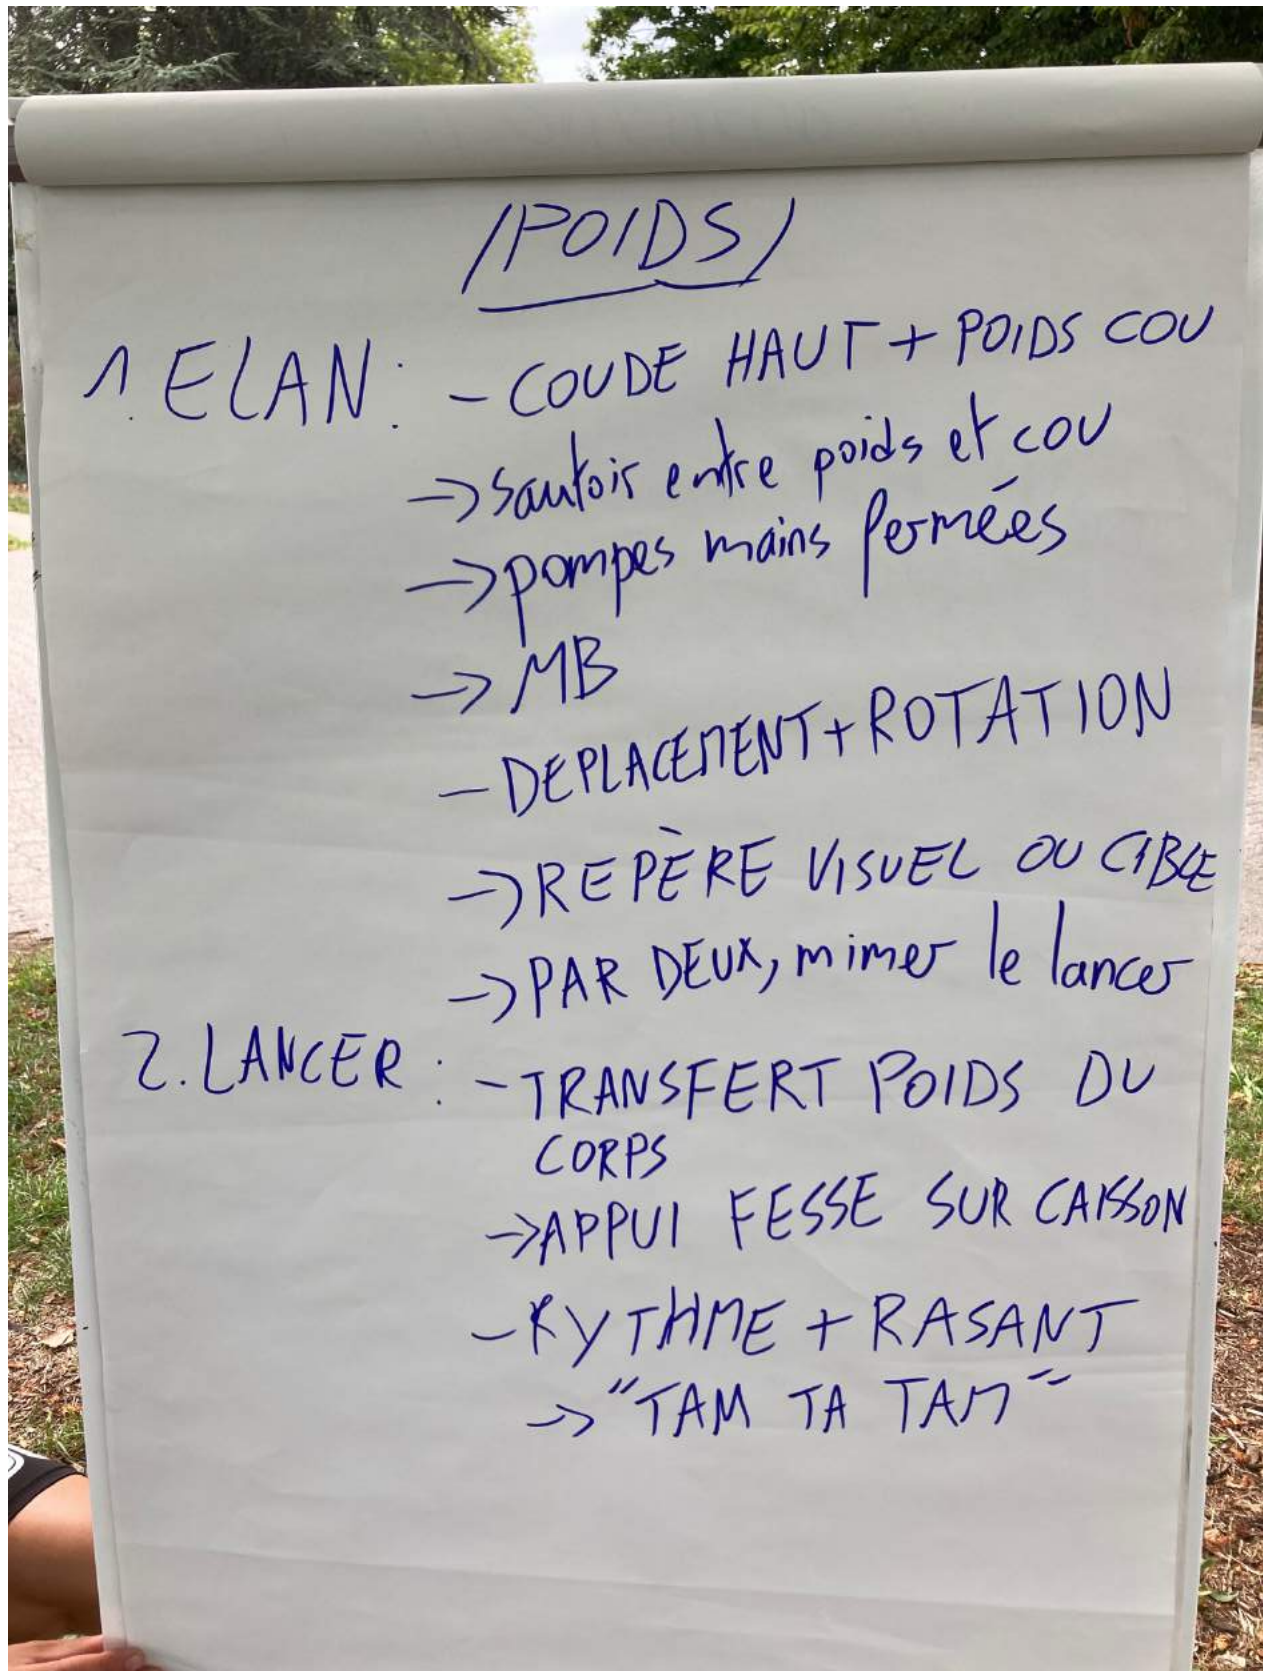 /POIDS/
1. ELAN : - COUDE HAUT + POIDS COU
-> Sautoir entre poids et cou
-> pompes mains fermées
-> MB
- DEPLACEMENT + ROTATION
-> REPÈRE VISUEL OU CIBLE
-> PAR DEUX, mimer le lancer
2. LANCER : - TRANSFERT POIDS DU
CORPS
-> APPUI FESSE SUR CAISSON
- RYTHME + RASANT
-> "TAM TA TAM"